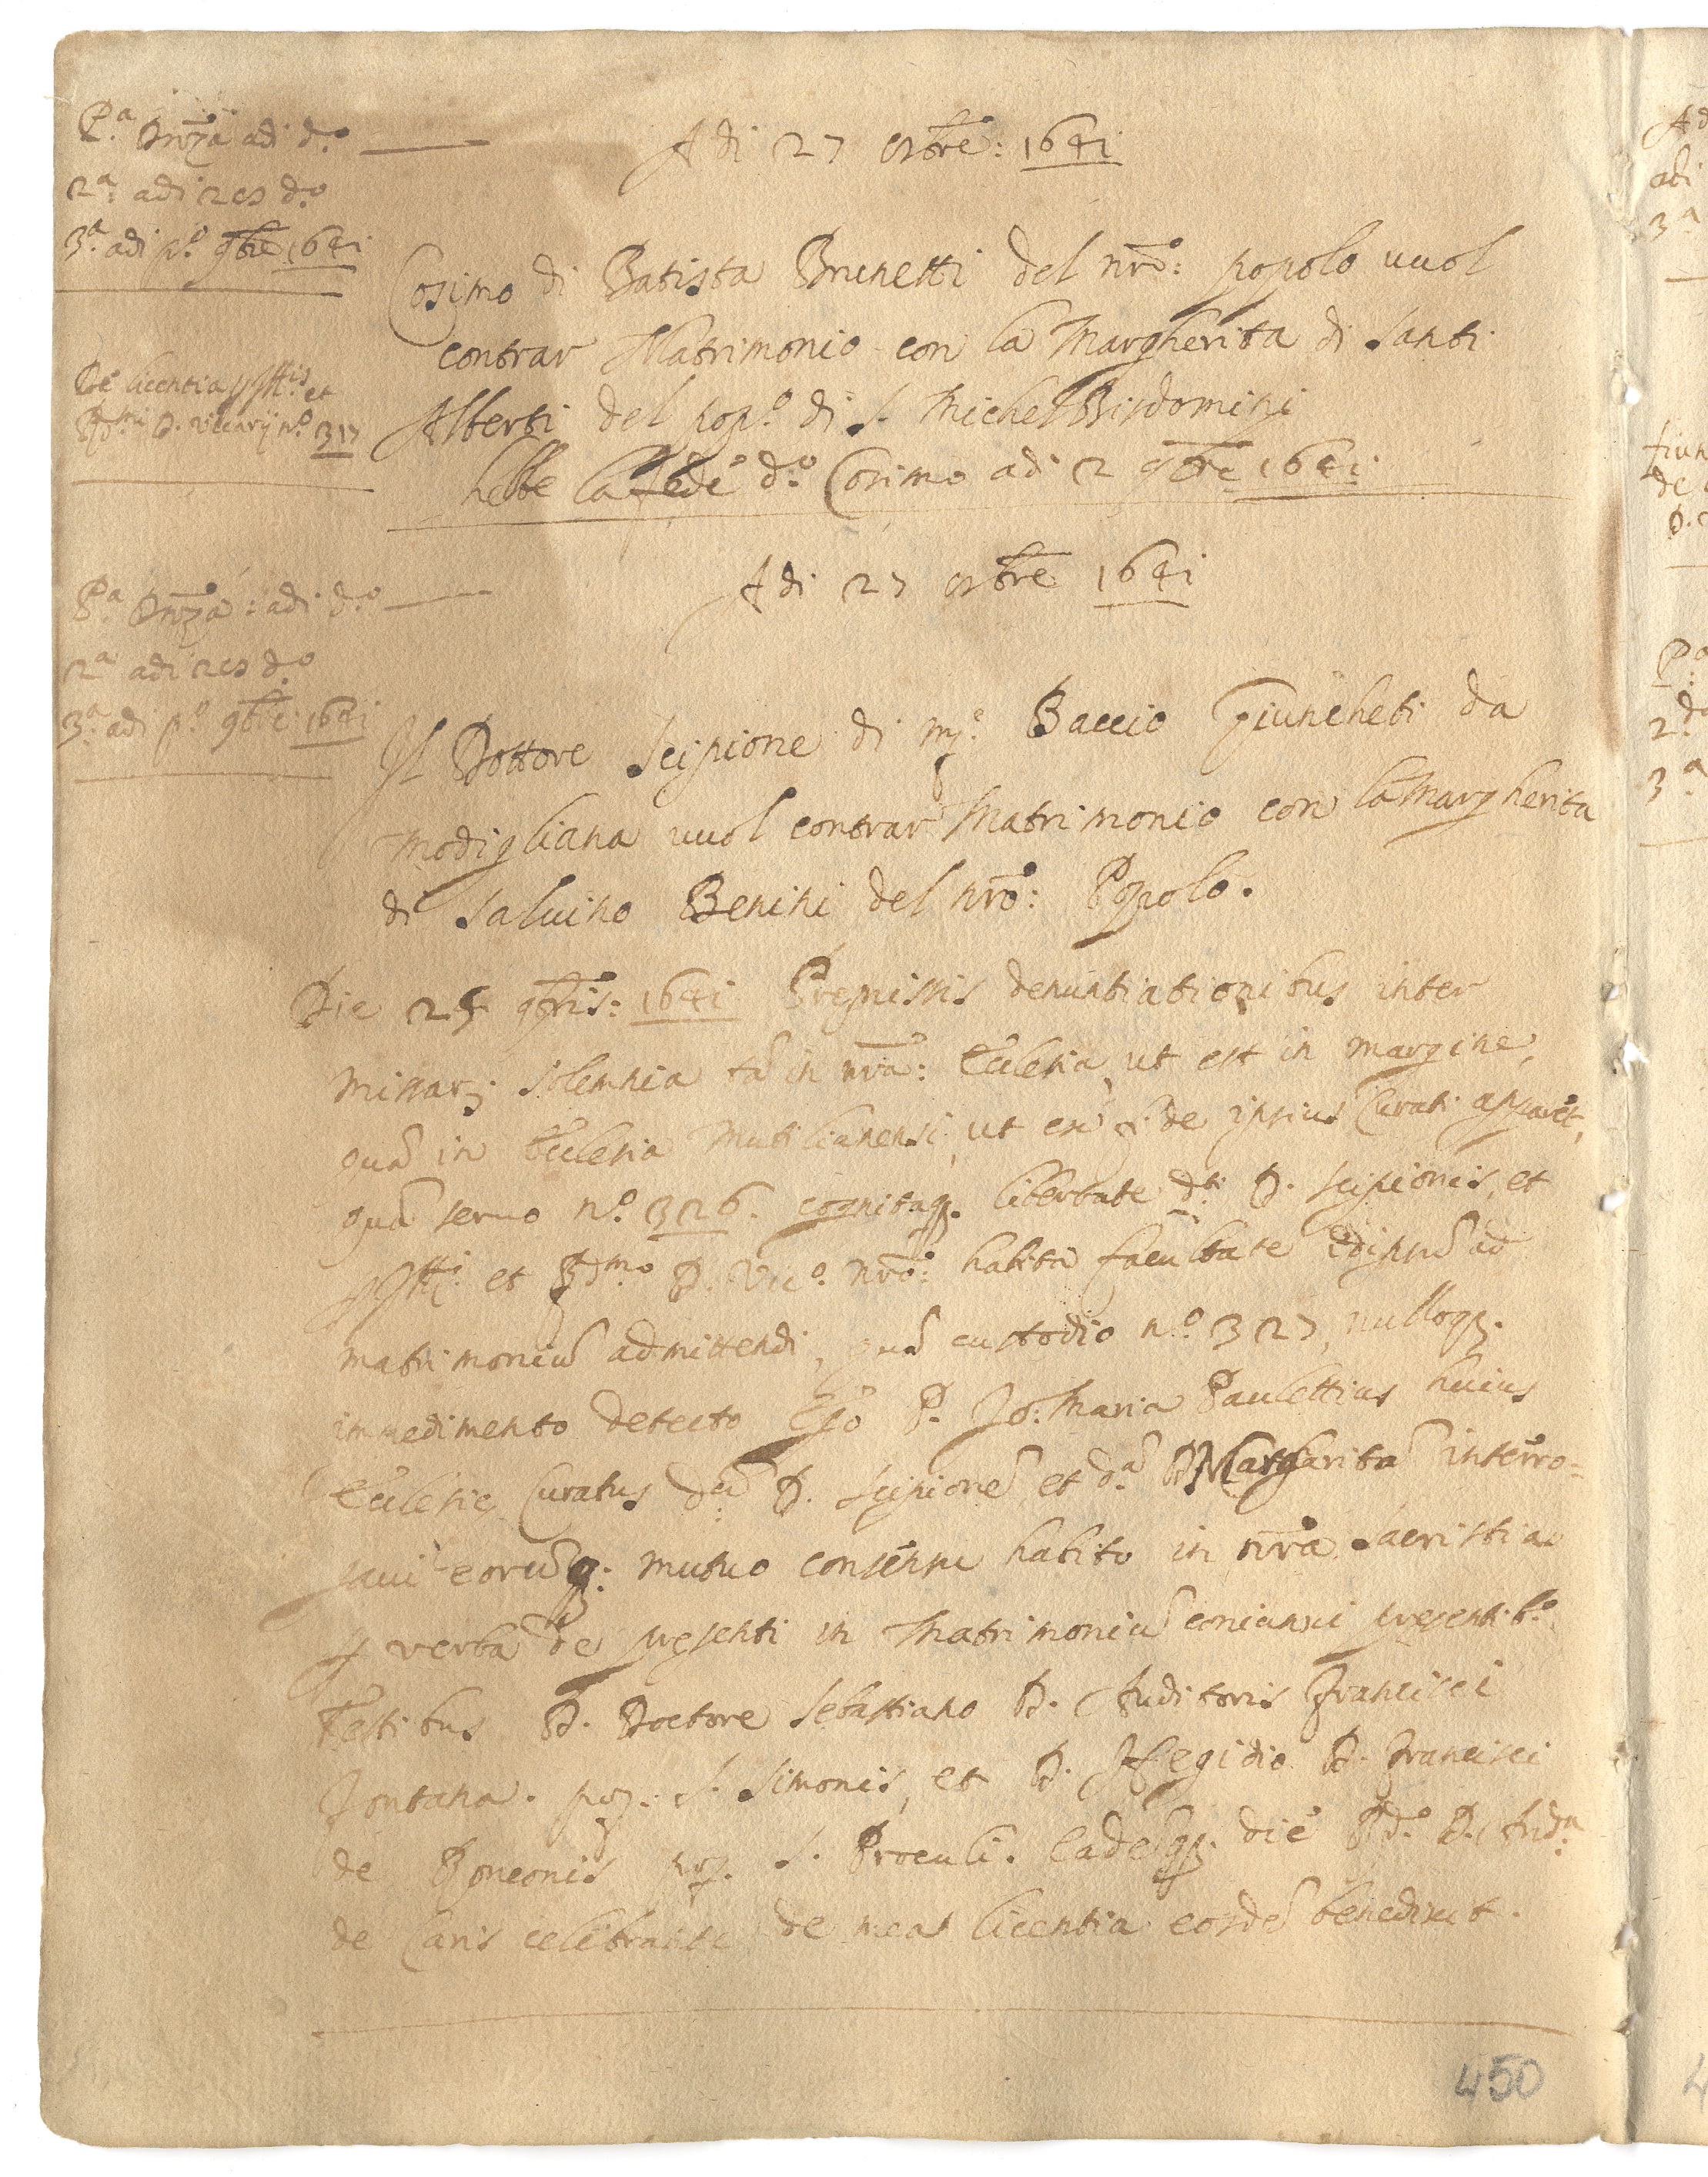 P.ª Dnõza adi d.º
2ª: adi 28 d.º
3ª adi p.º 9bre 1641
Adi 27 8bre: 1641
Cosimo di Batista Brunetti del nrõ: popolo vuol
contrar Matrimonio con la Margherita di Santi
Alberti del pop.º di S. Michel Bisdomini
hebbe la fede d.º Cosimo adi 2 9bre 1641
De licentia et
D. Vicarij nº 317
Adi 27 8bre 1641
Pª Dnõza: adi d.º
2ª adi 28 d.º
3ª adi p.º 9bre: 1641
Il Dottore Scipione di Baccio Giuncheti da
Modigliana vuol contrar Matrimonio con la Margherita
di Salvino Benini del nrõ: Popolo.
Die 25 9bris: 1641 Premissis denuntiationibus inter
missar; solemnia tã in nrã: Ecclesia, ut est in margine,
quã in Ecclesia Mutilianensi, ut ex fide ipsius Curati apparet,
quã servo nº 326. cognitaq;. libertate d:ti D. Scipionis, et
et Rdmo D. Vicº. nrõ: habita facultate ad
matrimoniũ admittendi, quã custodio nº 327, nulloq;.
impedimento detecto Ego P. Jo: Maria Paulettius huius
Ecclesię Curatus D. Scipionẽ, et d.ã D. Margaritã interro=
gavi eorũq;: mutuo consensu habito in nrã Sacristia
p verba de presenti in Matrimoniũ coniunxi presentib.º
Testibus D. Doctore Sebastiano D. Auditoris Francisci
Fontana. pop. S. Simonis, et D. Aegidio D. Francisci
de pop. S. Proculi. Eadẽq;. die R.do D.
de Caris celebrante de mea licentia eosdẽ benedixit.
450